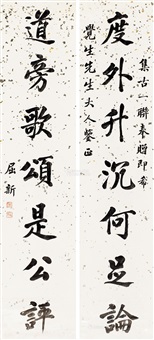 度外升沉何足論
集古一聯奉贈即希
覺生先生大人鑒正
道旁歌頌是公評
屈新